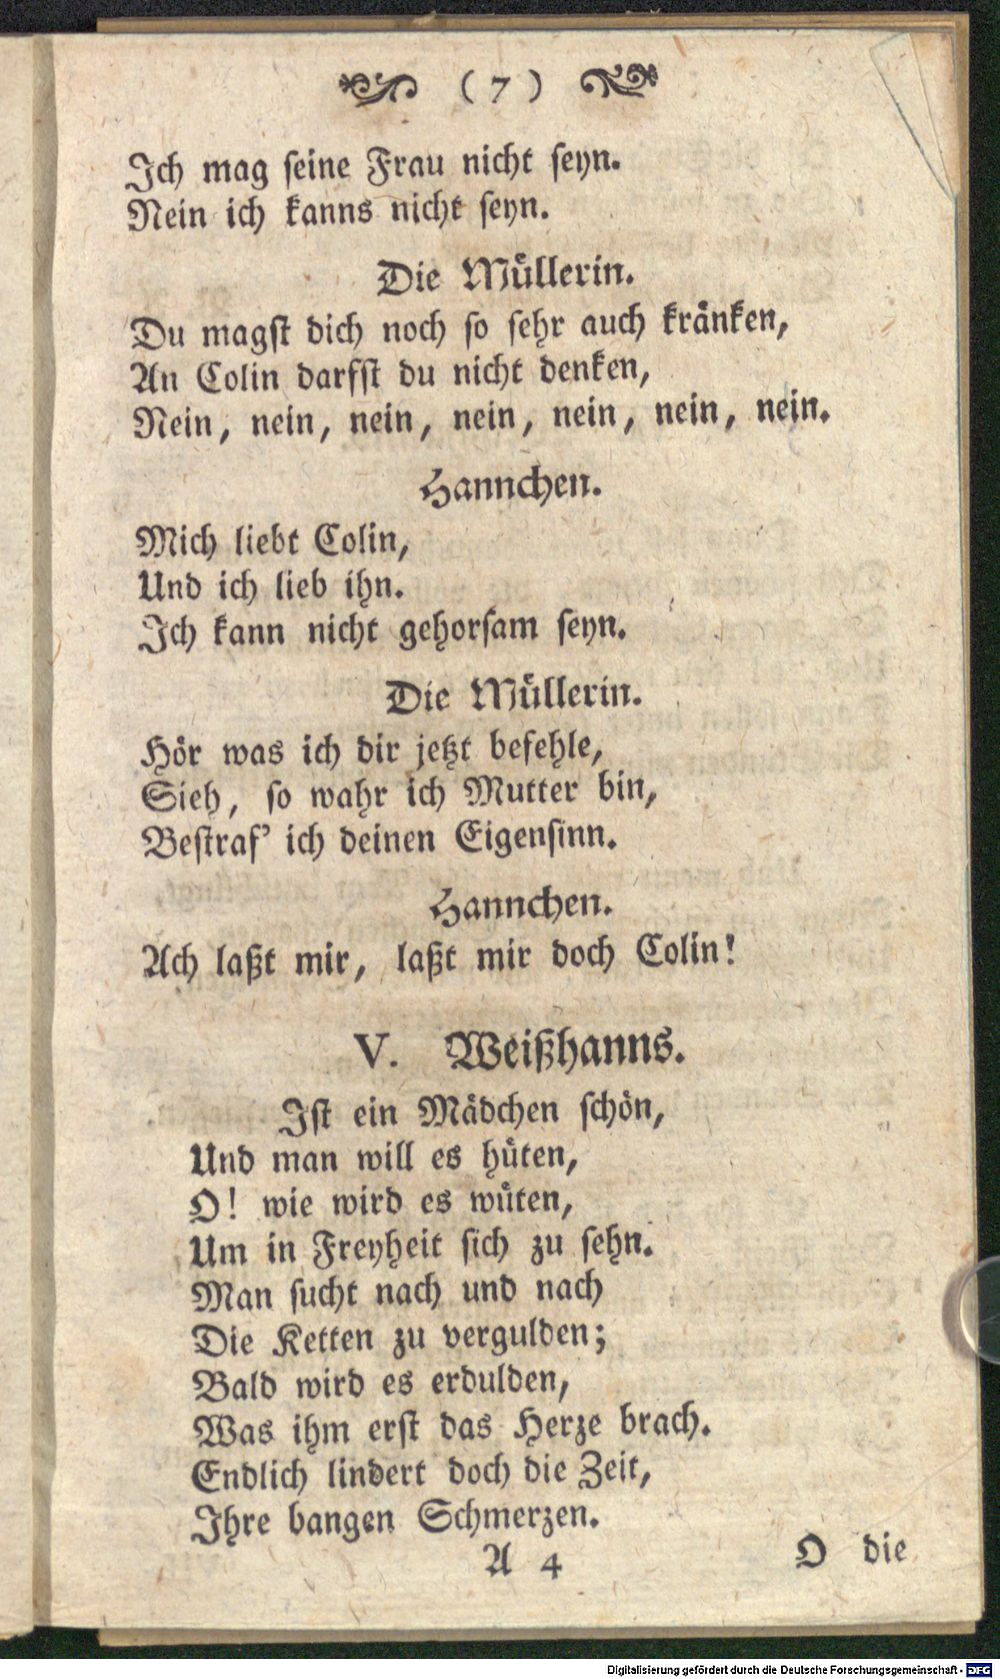 ( 7 )
Ich mag seine Frau nicht seyn.
Nein ich kanns nicht seyn.
Die Müllerin.
Du magst dich noch so sehr auch kränken,
An Colin darfst du nicht denken,
Nein, nein, nein, nein, nein, nein, nein.
Hannchen.
Mich liebt Colin,
Und ich lieb ihn.
Ich kann nicht gehorsam seyn.
Die Müllerin.
Hör was ich dir jetzt befehle,
Sieh, so wahr ich Mutter bin,
Bestraf' ich deinen Eigensinn.
Hannchen.
Ach laßt mir, laßt mir doch Colin!
V. Weißhanns.
Ist ein Mädchen schön,
Und man will es hüten,
O! wie wird es wüten,
Um in Freyheit sich zu sehn.
Man sucht nach und nach
Die Ketten zu vergulden;
Bald wird es erdulden,
Was ihm erst das Herze brach.
Endlich lindert doch die Zeit,
Ihre bangen Schmerzen.
A 4
O die
Digitalisierung gefördert durch die Deutsche Forschungsgemeinschaft - DFG